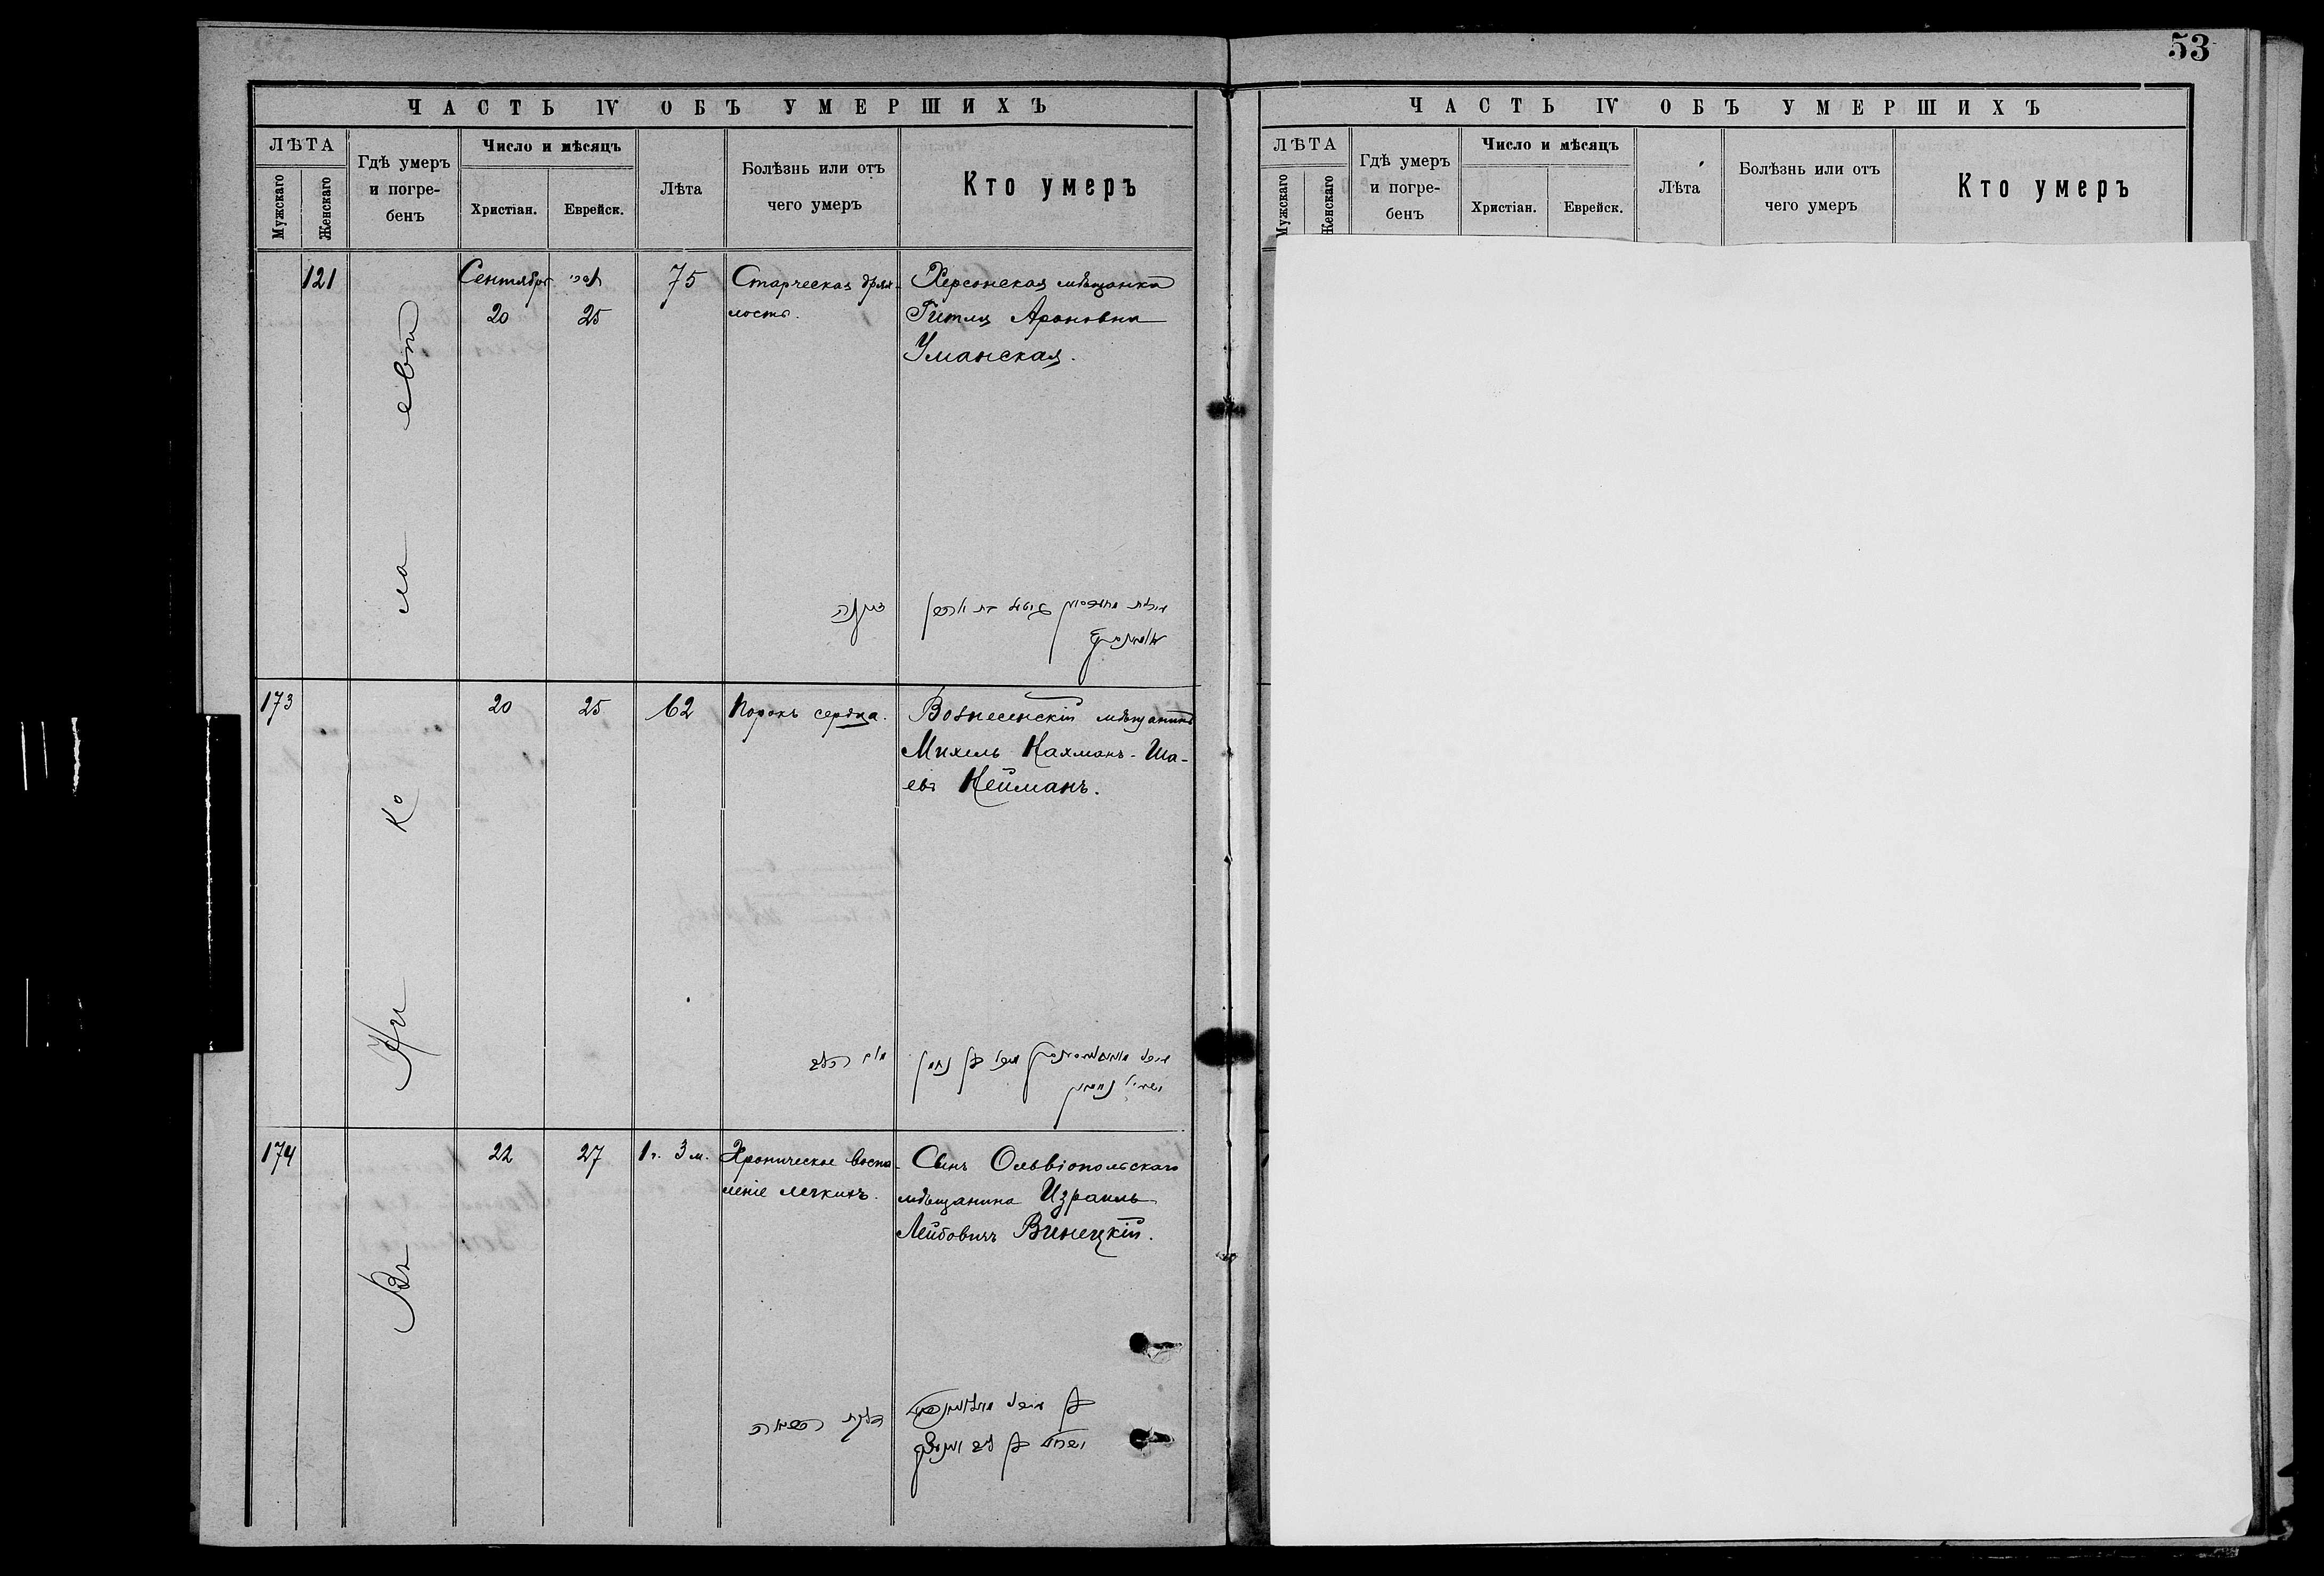 53
ЧАСТЬ IV ОБЪ УМЕРШИХЪ
ЛѢТА
Мужскаго
Женскаго
Гдѣ умеръ
и погре-
бенъ
Число и мѣсяцъ
Христіан.
Еврейск.
Лѣта
Болѣзнь или отъ
чего умеръ
Кто умеръ
121
Сентября
20
25
75
Старческая дрях-
лость.
Херсонская мѣщанка
Гитля Ароновна
Уманская.
173
20
25
62
Порокъ сердца.
Вознесенскій мѣщанинъ
Михель Нахманъ-Ша-
евъ Нейманъ.
174
22
27
1 г. 3 м.
Хроническое воспа-
леніе легкихъ.
Сынъ Ольвіопольскаго
мѣщанина Израиль
Лейбовичъ Винецкій.
Въ Ни ко ла евѣ
ЧАСТЬ IV ОБЪ УМЕРШИХЪ
ЛѢТА
Мужскаго
Женскаго
Гдѣ умеръ
и погре-
бенъ
Число и мѣсяцъ
Христіан.
Еврейск.
Лѣта
Болѣзнь или отъ
чего умеръ
Кто умеръ